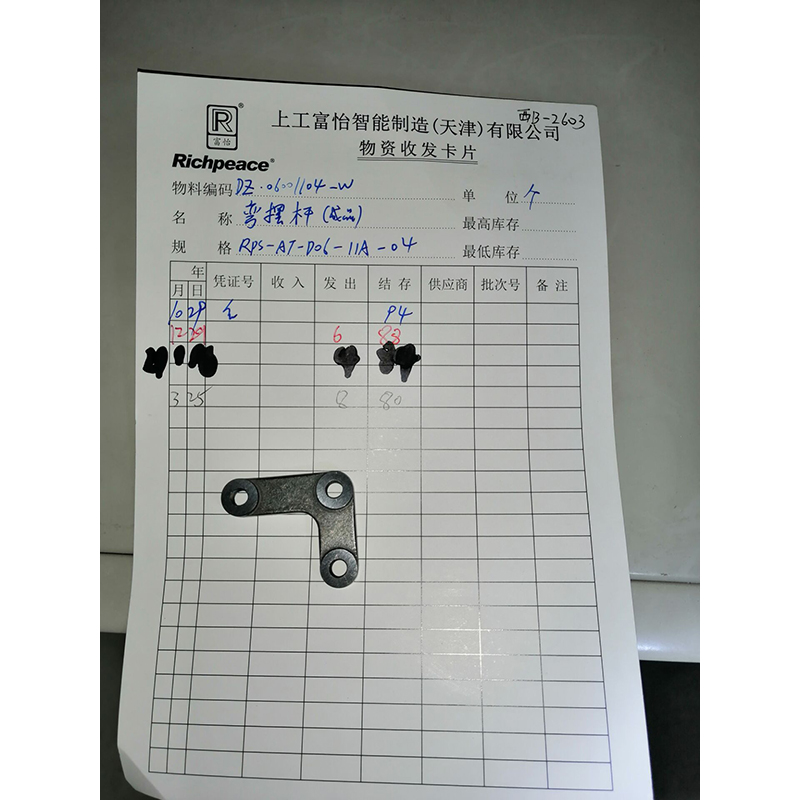 西B-2603
R®
富怡
上工富怡智能制造(天津)有限公司
Richpeace®
物资收发卡片
物料编码 DZ.06001104-W 单位 个
名称 弯摆杆(成品) 最高库存
规格 RPS-AT-D06-11A-04 最低库存
年 凭证号 收入 发出 结存 供应商 批次号 备注
月 日
10 29 94
12 29 6 88
3 25 8 80